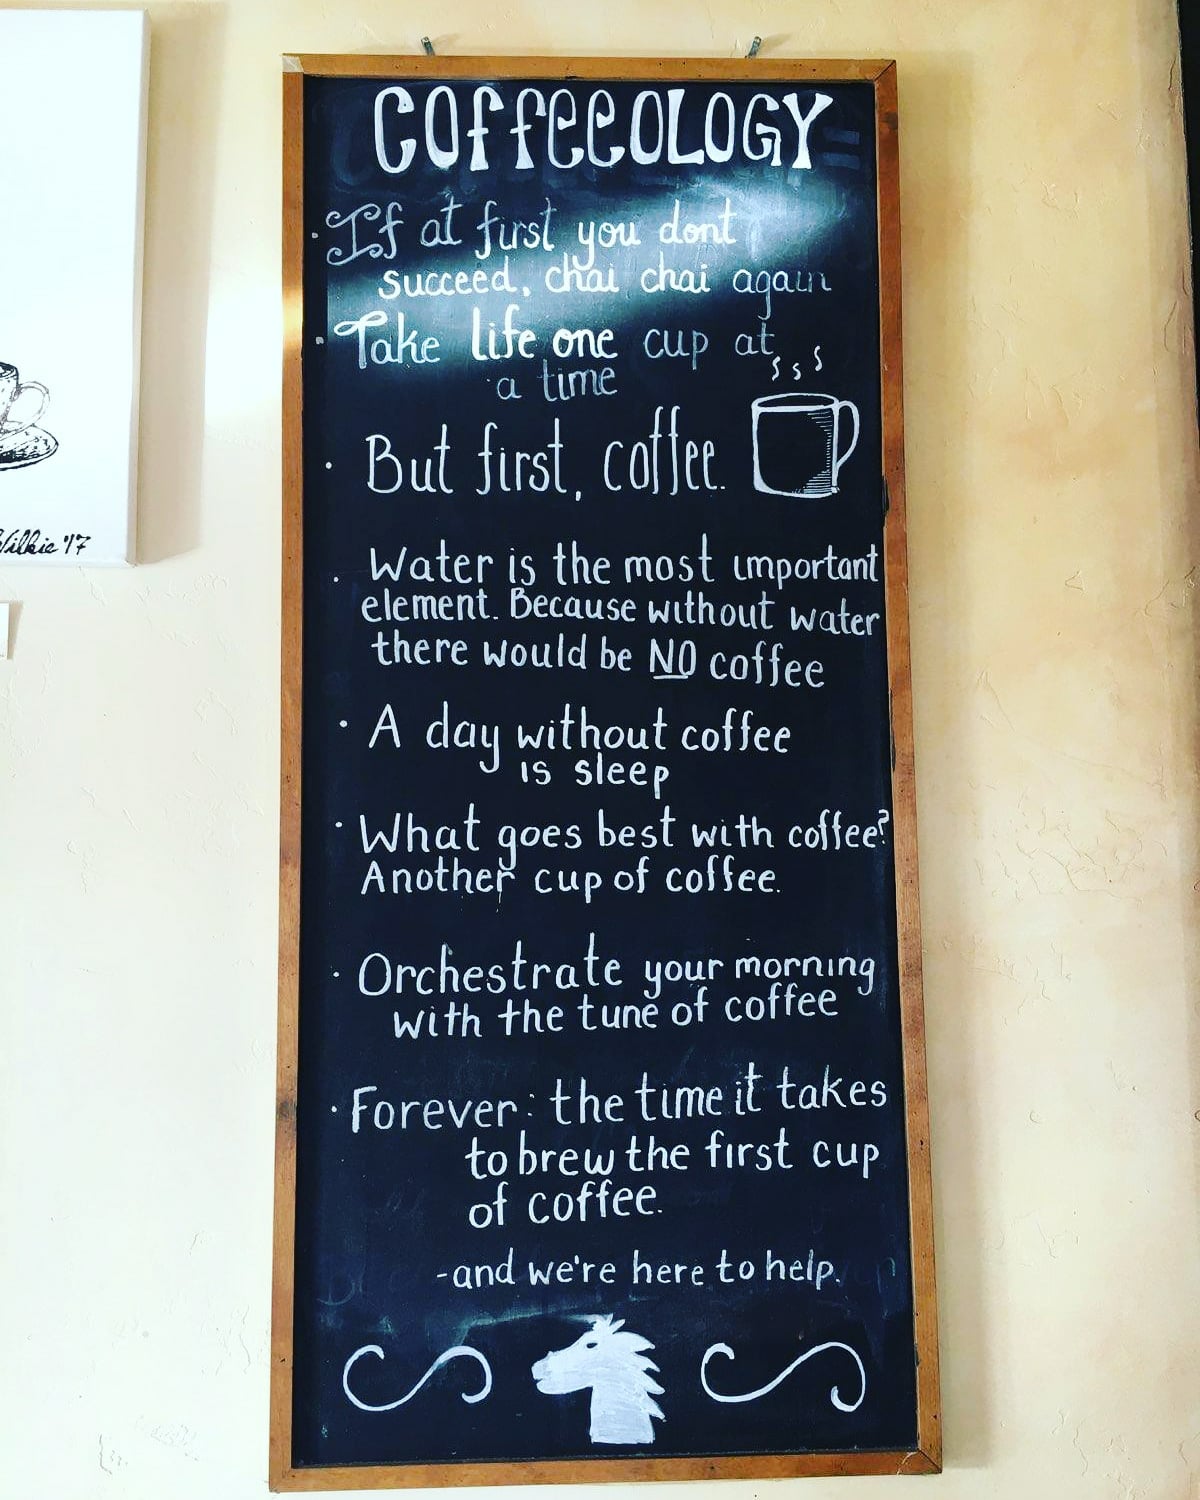 COFFEEOLOGY
· If at first you dont
succeed, chai chai again
· Take life one cup at
a time
· But first, coffee.
· Water is the most important
element. Because without water
there would be NO coffee
· A day without coffee
is sleep
· What goes best with coffee?
Another cup of coffee.
· Orchestrate your morning
with the tune of coffee
· Forever: the time it takes
to brew the first cup
of coffee.
-and we're here to help.
Wilkie '17